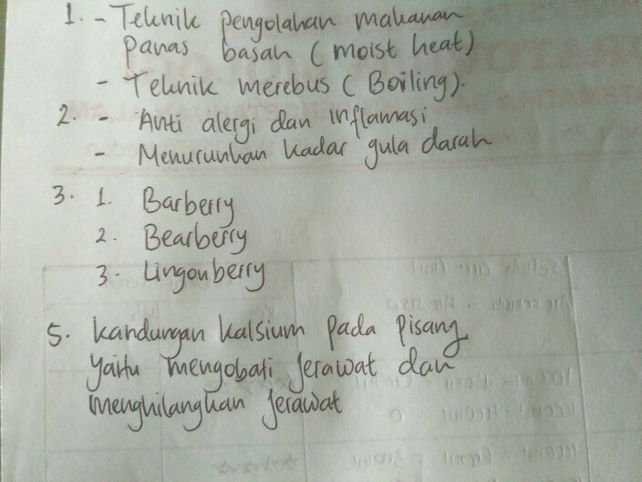 1. - Teknik pengolahan makanan
panas basah (moist heat)
- Teknik merebus (Boiling).
2. - Anti alergi dan inflamasi
- Menurunkan kadar gula darah
3. 1. Barberry
2. Bearberry
3. Lingonberry
5. kandungan kalsium pada pisang
yaitu mengobati jerawat dan
menghilangkan jerawat